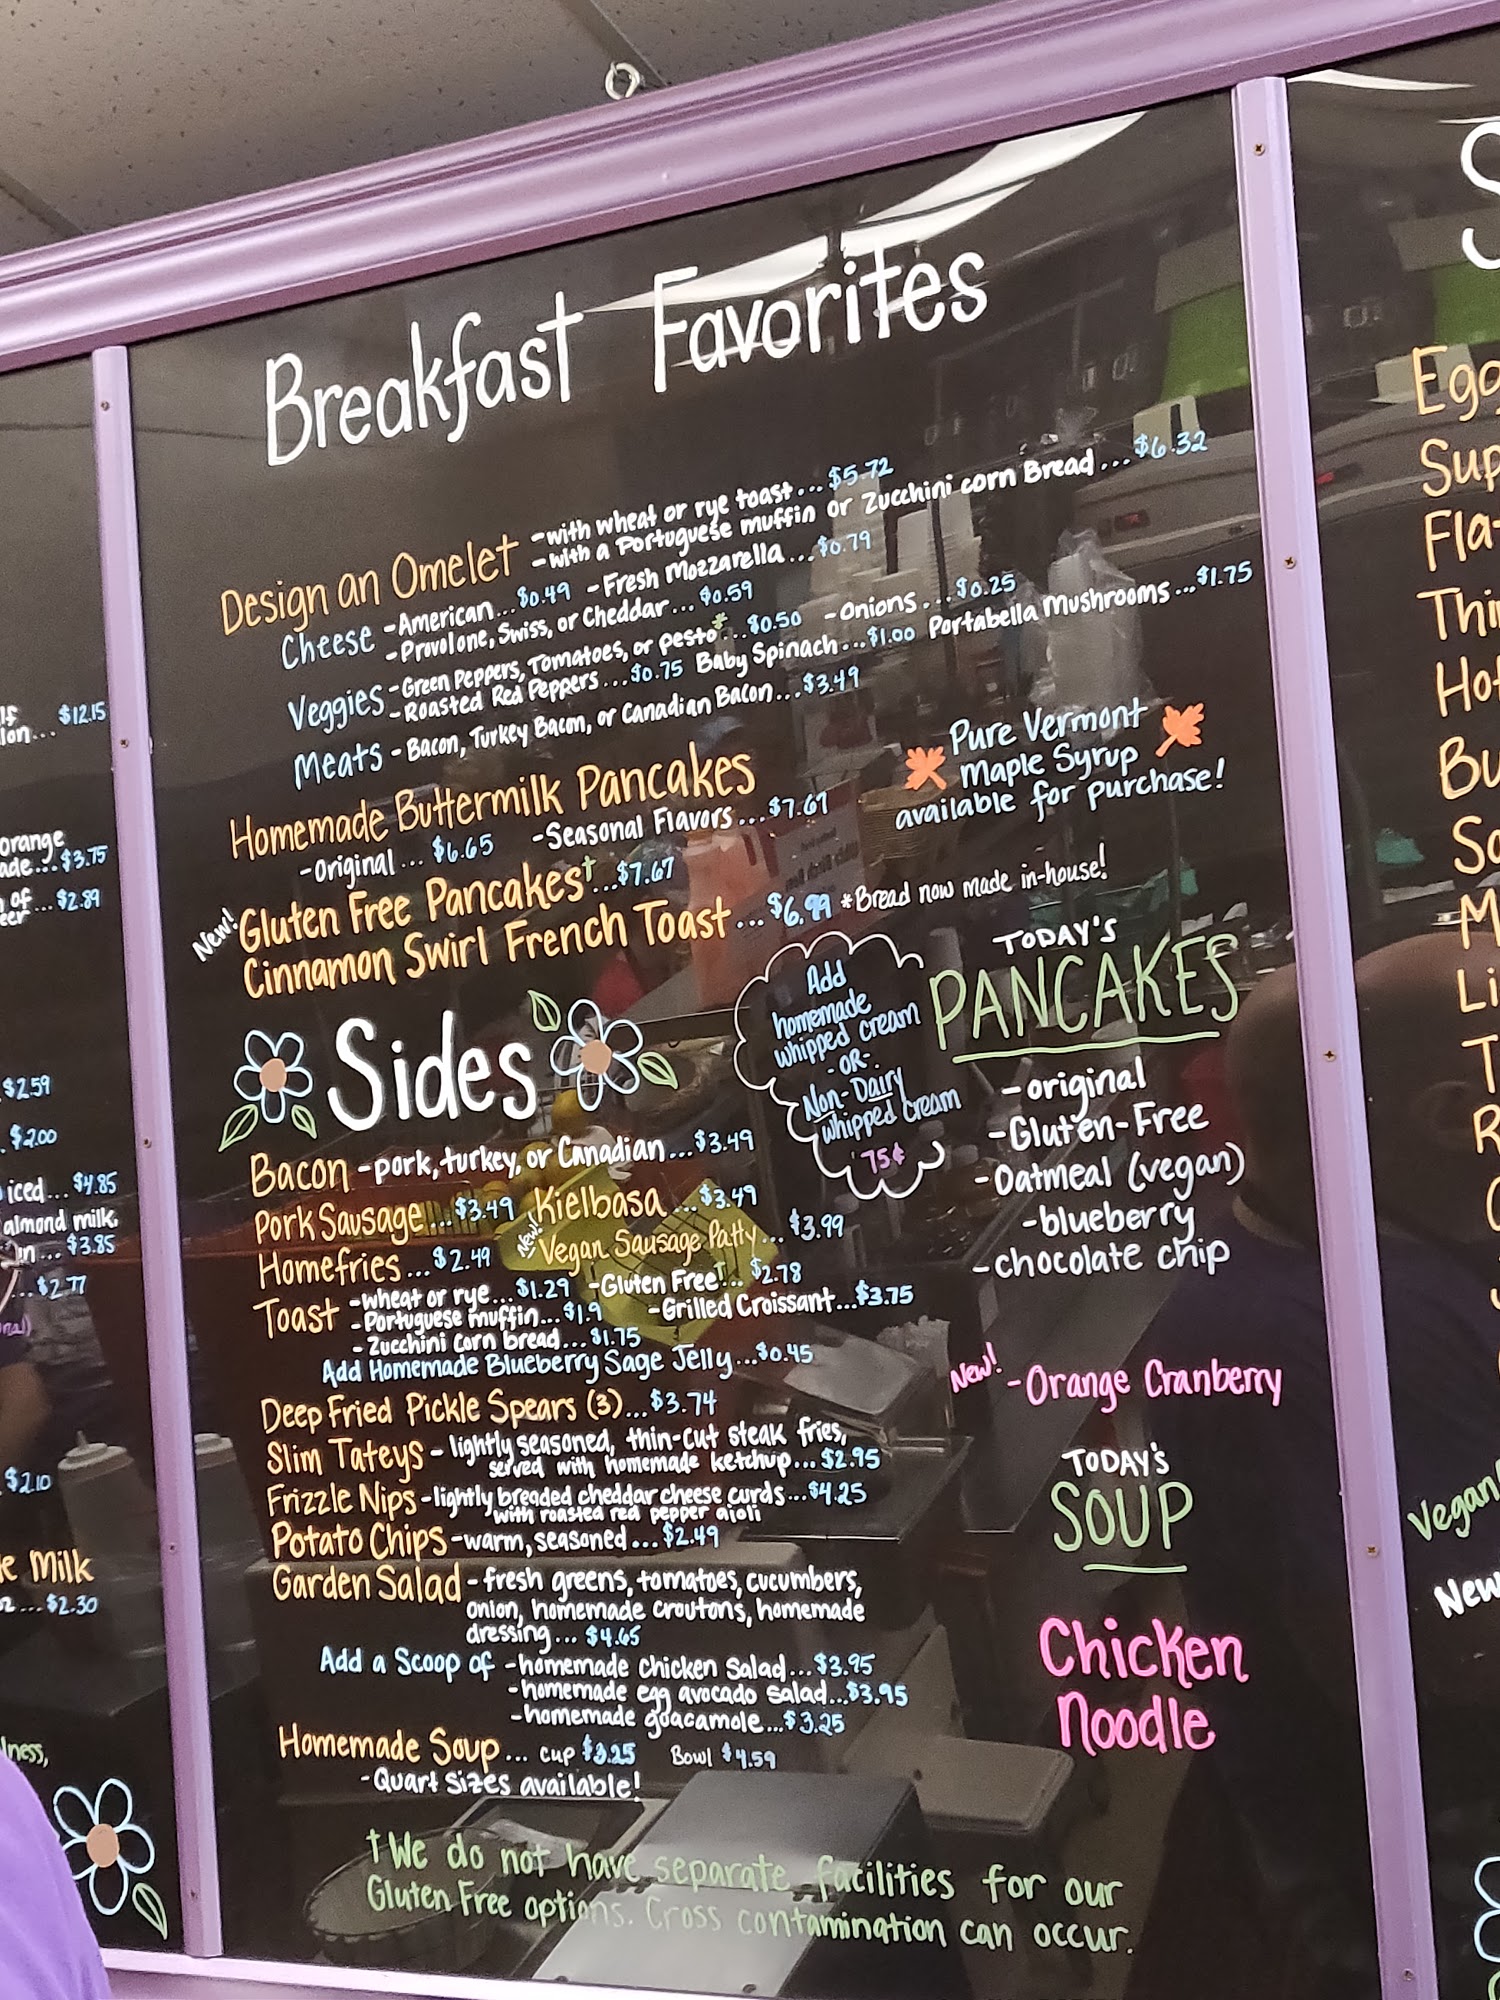 Breakfast Favorites
Design an Omelet -with wheat or rye toast... $5.72
-with a Portuguese muffin or Zucchini corn Bread... $6.32
Cheese -American... $0.49 -Fresh Mozzarella... $0.79
-Provolone, Swiss, or Cheddar... $0.59
Veggies -Green Peppers, Tomatoes, or pesto*... $0.50 -Onions... $0.25
-Roasted Red Peppers... $0.75 Baby Spinach... $1.00 Portabella Mushrooms... $1.75
Meats -Bacon, Turkey Bacon, or Canadian Bacon... $3.49
Homemade Buttermilk Pancakes
-Original... $6.65 -Seasonal Flavors... $7.67
New! Gluten Free Pancakes†... $7.67
Cinnamon Swirl French Toast... $6.99 *Bread now made in-house!
Pure Vermont
Maple Syrup
available for purchase!
Sides
Bacon -pork, turkey, or Canadian... $3.49
Pork Sausage... $3.49 Kielbasa... $3.49
Homefries... $2.49 New! Vegan Sausage Patty... $3.99
Toast -wheat or rye... $1.29 -Gluten Free†... $2.78
-Portuguese muffin... $1.9 -Grilled Croissant... $3.75
-Zucchini corn bread... $1.75
Add Homemade Blueberry Sage Jelly... $0.45
Deep Fried Pickle Spears (3)... $3.74
Slim Tateys - lightly seasoned, thin-cut steak fries,
served with homemade ketchup... $2.95
Frizzle Nips -lightly breaded cheddar cheese curds... $4.25
with roasted red pepper aioli
Potato Chips -warm, seasoned... $2.49
Garden Salad -fresh greens, tomatoes, cucumbers,
onion, homemade croutons, homemade
dressing... $4.65
Add a Scoop of -homemade chicken salad... $3.95
-homemade egg avocado salad... $3.95
-homemade guacamole... $3.25
Homemade Soup... cup $3.25 Bowl $4.59
-Quart sizes available!
†We do not have separate facilities for our
Gluten Free options. Cross contamination can occur.
Add
homemade
whipped cream
-OR-
Non-Dairy
whipped cream
75¢
TODAY'S
PANCAKES
-original
-Gluten-Free
-Oatmeal (vegan)
-blueberry
-chocolate chip
New! -Orange Cranberry
TODAY'S
SOUP
Chicken
Noodle
$12.15
orange
$3.75
of
$2.89
$2.59
$2.00
iced... $4.85
almond milk,
$3.85
$2.77
$2.10
Milk
$2.30
Vegan
New